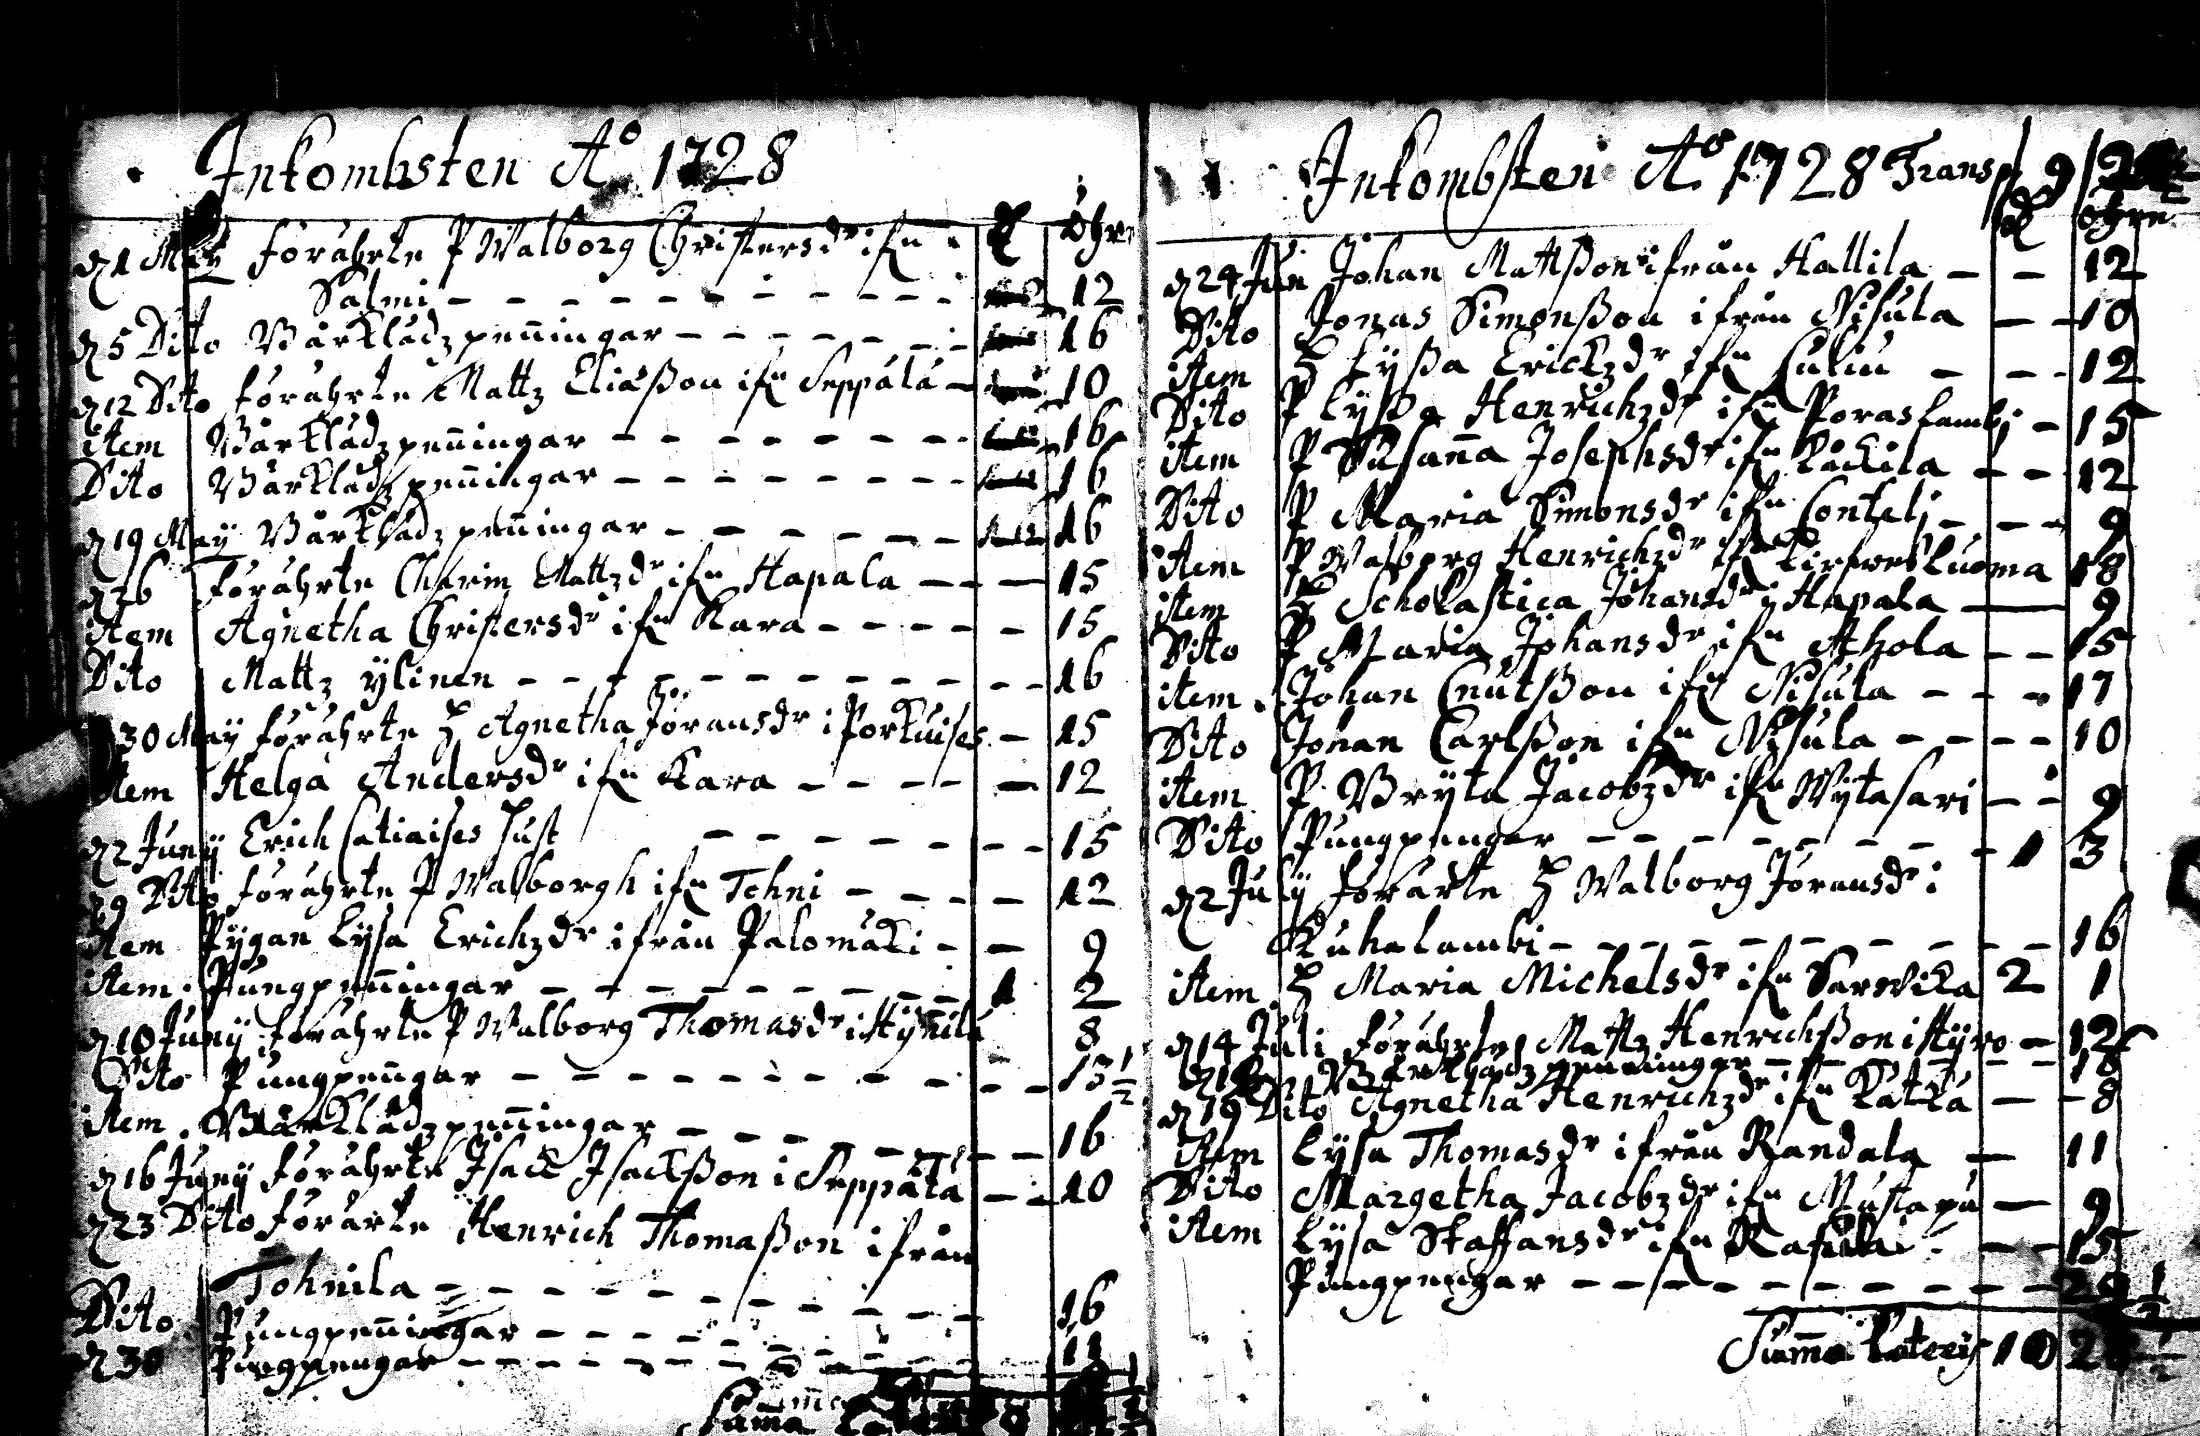 Inkombsten Aº 1728
đ 1 Maÿ förährte P Walborg Christersdr ifn
Salmi 12
đ 5 Dito Bårklädz peñingar 16
đ 12 Dito förährte Mattz Eliæßon ifn Seppälä 10
item Bårklädz peñingar 16
Dito Bårklädz peñingar 16
đ 19 Maÿ Bårklädz peñingar 16
đ 26 förährte Charin Mattzdr ifn Hapala 15
item Agnetha Christersdr ifn Kara 15
Dito Mattz ÿlinen 16
30 Maÿ förährte H Agnetha Jöransdr i Porkuises 15
item Helga Andersdr ifn Kara 12
đ 2 Junÿ Erich Catiaises Hust 15
đ 9 Dito förährte P Walborgh ifn Tohni 12
item Pÿgan Lÿsa Erichzdr ifrån Palomäki 9
item Pungpeñingar 1 2
đ 10 Junÿ förährte P Walborg Thomasdr i Hÿnilä 8
Dito Pungpeñgar 13 1/2
item Bårklädz peñingar 16
đ 16 Junÿ förährte Isack Isackßon i Seppälä 10
đ 23 Dito förärte Henrich Thomaßon ifrån
Tohnila 16
Dito Pungpeñingar 11
đ 30 Pungpengar
Suma
Inkombsten Aº 1728 Transp 9
öhre
đ 24 Jun Johan Mattßon ifrån Hallila 12
Dito Jonas Simonßon ifrån Nisula 10
item H Lyßa Erickzdr ifn Culiu 12
Dito P Lÿßa Henrichzdr ifn Poraslambi 15
item P Susaña Josephsdr ifn Käckilä 12
Dito P Maria Simonsdr ifn Conteli 9
item P Walborg Henrichzdr ifn Kirfwesluoma 18
item H Scholastica Johansdr i Hapala 9
Dito P Maria Johansdr ifn Ahola 15
item Johan Cnutßon ifn Nisula 17
Dito Johan Carlßon ifn Nisula 10
item P Brÿta Jacobzdr ifn Wÿtasari 9
Dito Pungpengar 1 3
đ 2 Julÿ förärte H Walborg Jöransdr i
Kuhalambi 16
item H Maria Michelsdr ifn Sarwika 2 1
đ 14 Juli förährte Mattz Henrichßon i Hÿro 12
Bårklädz penningar 18
đ 19 Dito Agnetha Henrichzdr ifn Kätkä 8
item Lÿsa Thomasdr ifrån Randala 11
Dito Margetha Jacobzdr ifn Mustapä 9
item Lÿsa Staffansdr ifn 15
Pungpengar
Suma Lateris 10